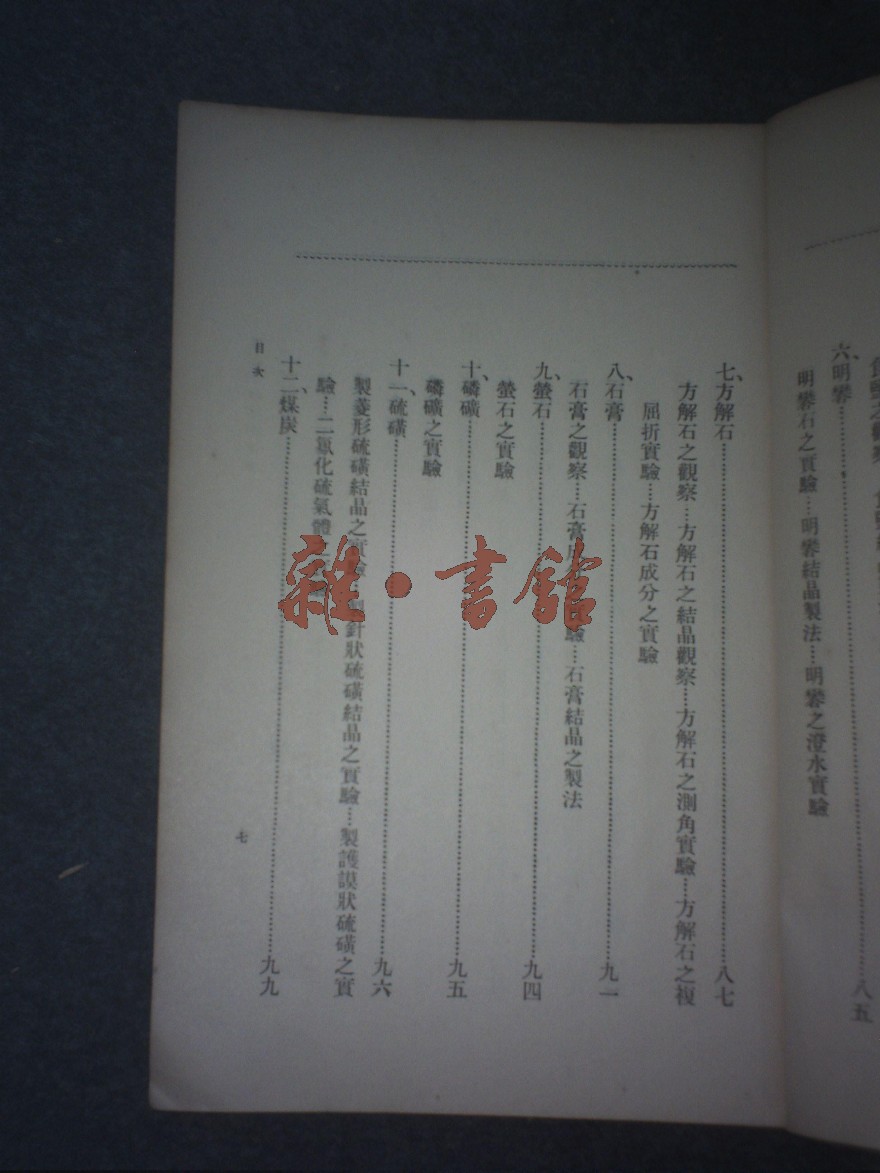 明礬石之實驗…明礬結晶製法…明礬之澄水實驗
六、明礬……八五
七、方解石……八七
方解石之觀察…方解石之結晶觀察…方解石之測角實驗…方解石之複
屈折實驗…方解石成分之實驗
八、石膏……九一
石膏之觀察…石膏成驗…石膏結晶之製法
九、螢石……九四
螢石之實驗
十、磷礦……九五
磷礦之實驗
十一、硫磺……九六
製菱形硫磺結晶之實驗…製針狀硫磺結晶之實驗…製護謨狀硫磺之實
驗…二氯化硫氣體
十二、煤炭……九九
目次
七
雜·書館